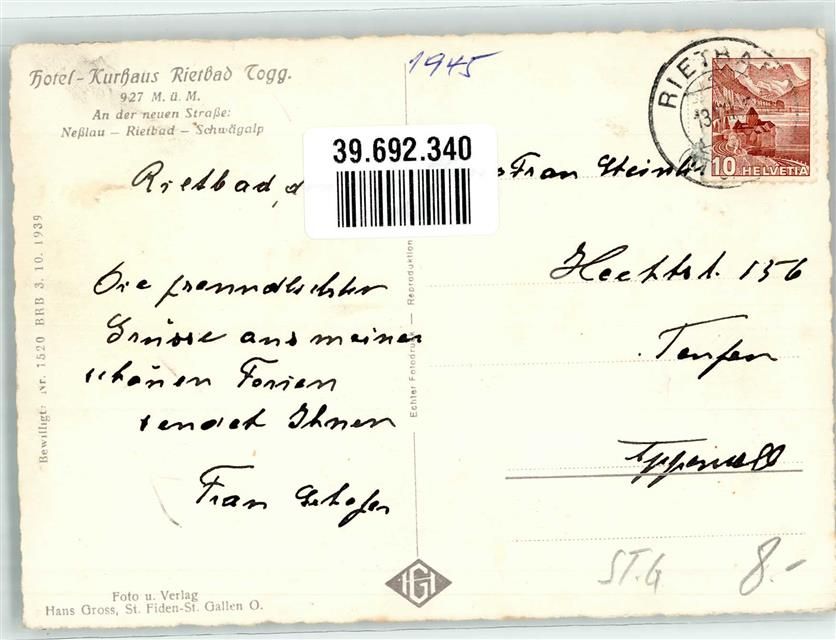 Hotel-Kurhaus Rietbad Togg.
927 M. ü. M.
An der neuen Straße:
Neßlau – Rietbad – Schwägalp
1945
RIETBA
13
10 HELVETIA
39.692.340
Rietbad, d.
Frau
Hechtst. 156
Teufen
Appenzell
Die freundlichsten
Grüsse aus meinen
schönen Ferien
sendet Ihnen
Frau
Bewilligt: Nr. 1520 BRB 3. 10. 1939
Echter Fotodruck — Reproduktion
HG
Foto u. Verlag
Hans Gross, St. Fiden-St. Gallen O.
ST.G
8.-